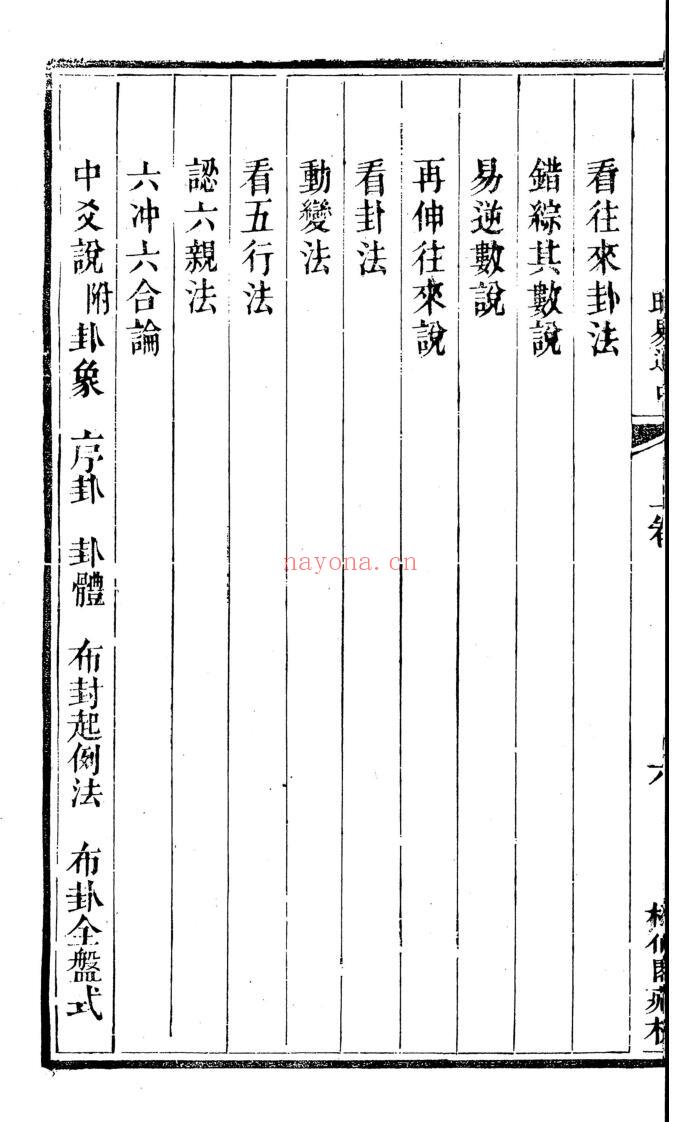 看往來卦法
錯綜其數說
易逆數說
再伸往來說
看卦法
動變法
看五行法
認六親法
六冲六合論
中爻說 附 卦象 序卦 卦體 布封起例法 布卦全盤式
nayona.cn